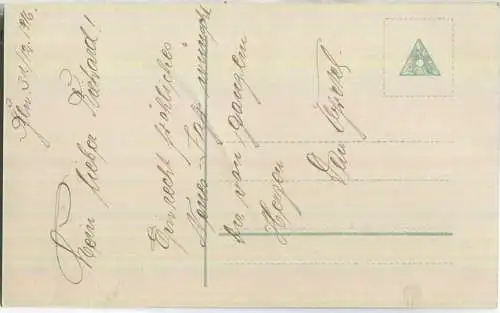 Bln. 31/12. 1916.
Mein lieber Richard!
Ein recht fröhliches
Neues Jahr wünscht
Dir von ganzem
Herzen
Dein